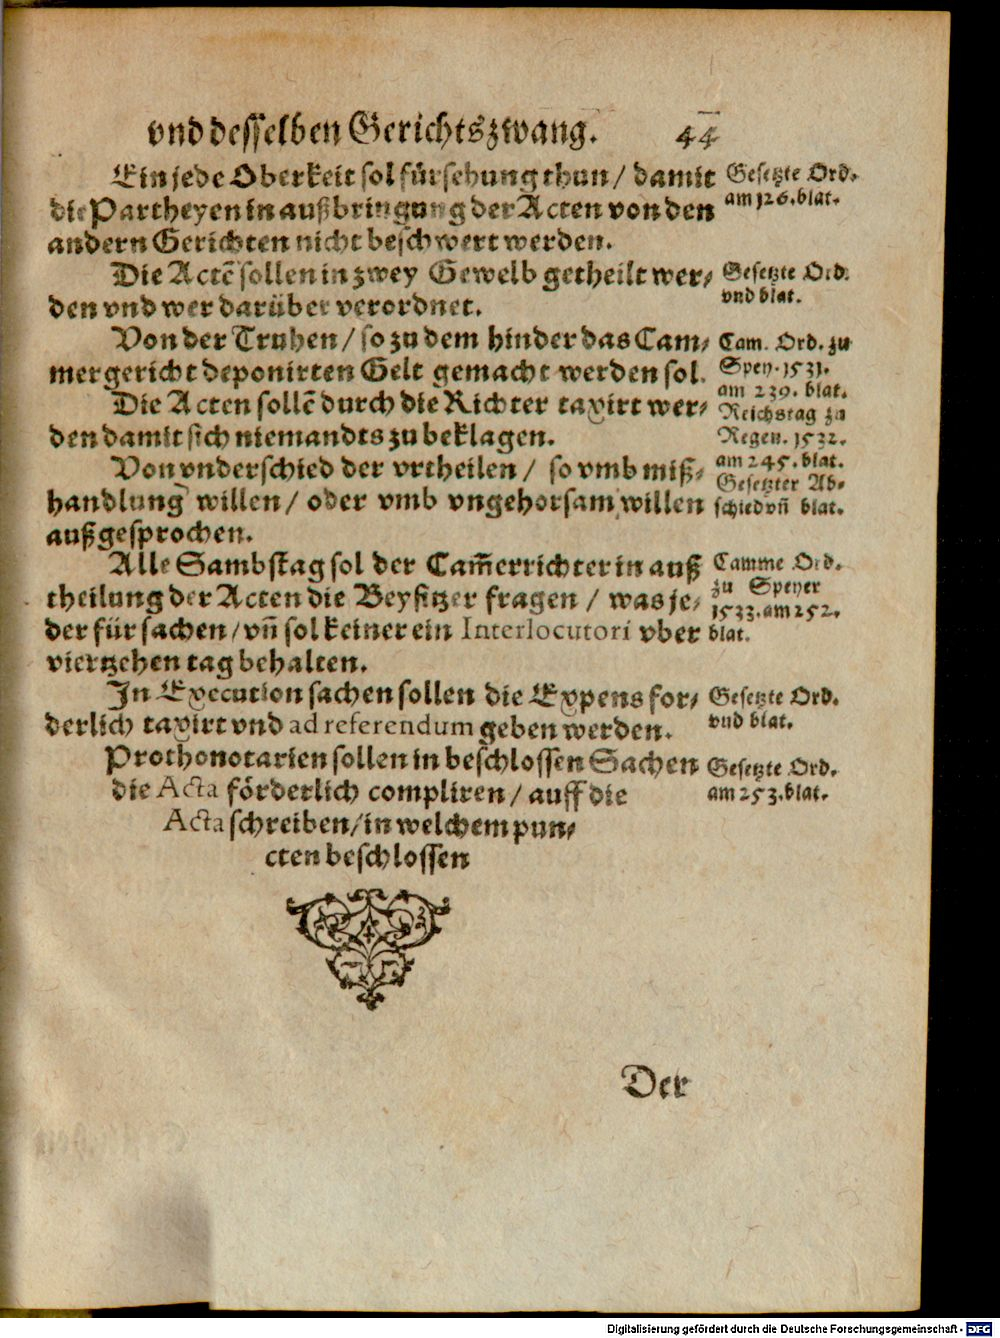 vnd desselben Gerichtszwang. 44
Ein jede Oberkeit sol fürsehung thun / damit
die Partheyen in außbringung der Acten von den
andern Gerichten nicht beschwert werden.
Gesetzte Ord.
am 126. blat.
Die Actē sollen in zwey Gewelb getheilt wer⸗
den vnd wer darüber verordnet.
Gesetzte Ord.
vnd blat.
Von der Truhen / so zu dem hinder das Cam⸗
mergericht deponirten Gelt gemacht werden sol.
Cam. Ord. zu
Spey. 1531.
am 239. blat.
Die Acten sollē durch die Richter taxirt wer⸗
den damit sich niemandts zu beklagen.
Reichstag zu
Regen. 1532.
am 245. blat.
Von vnderschied der vrtheilen / so vmb miß⸗
handlung willen / oder vmb vngehorsam willen
außgesprochen.
Gesetzter Ab⸗
schied vñ blat.
Alle Sambstag sol der Cam̄errichter in auß
theilung der Acten die Beysitzer fragen / was je⸗
der für sachen / vñ sol keiner ein Interlocutori vber
viertzehen tag behalten.
Camme Ord.
zu Speyer
1533. am 252.
blat.
In Execution sachen sollen die Expens for⸗
derlich taxirt vnd ad referendum geben werden.
Gesetzte Ord.
vnd blat.
Prothonotarien sollen in beschlossen Sachen
die Acta förderlich compliren / auff die
Acta schreiben / in welchem pun⸗
cten beschlossen
Gesetzte Ord.
am 253. blat.
Der
Digitalisierung gefördert durch die Deutsche Forschungsgemeinschaft - DFG